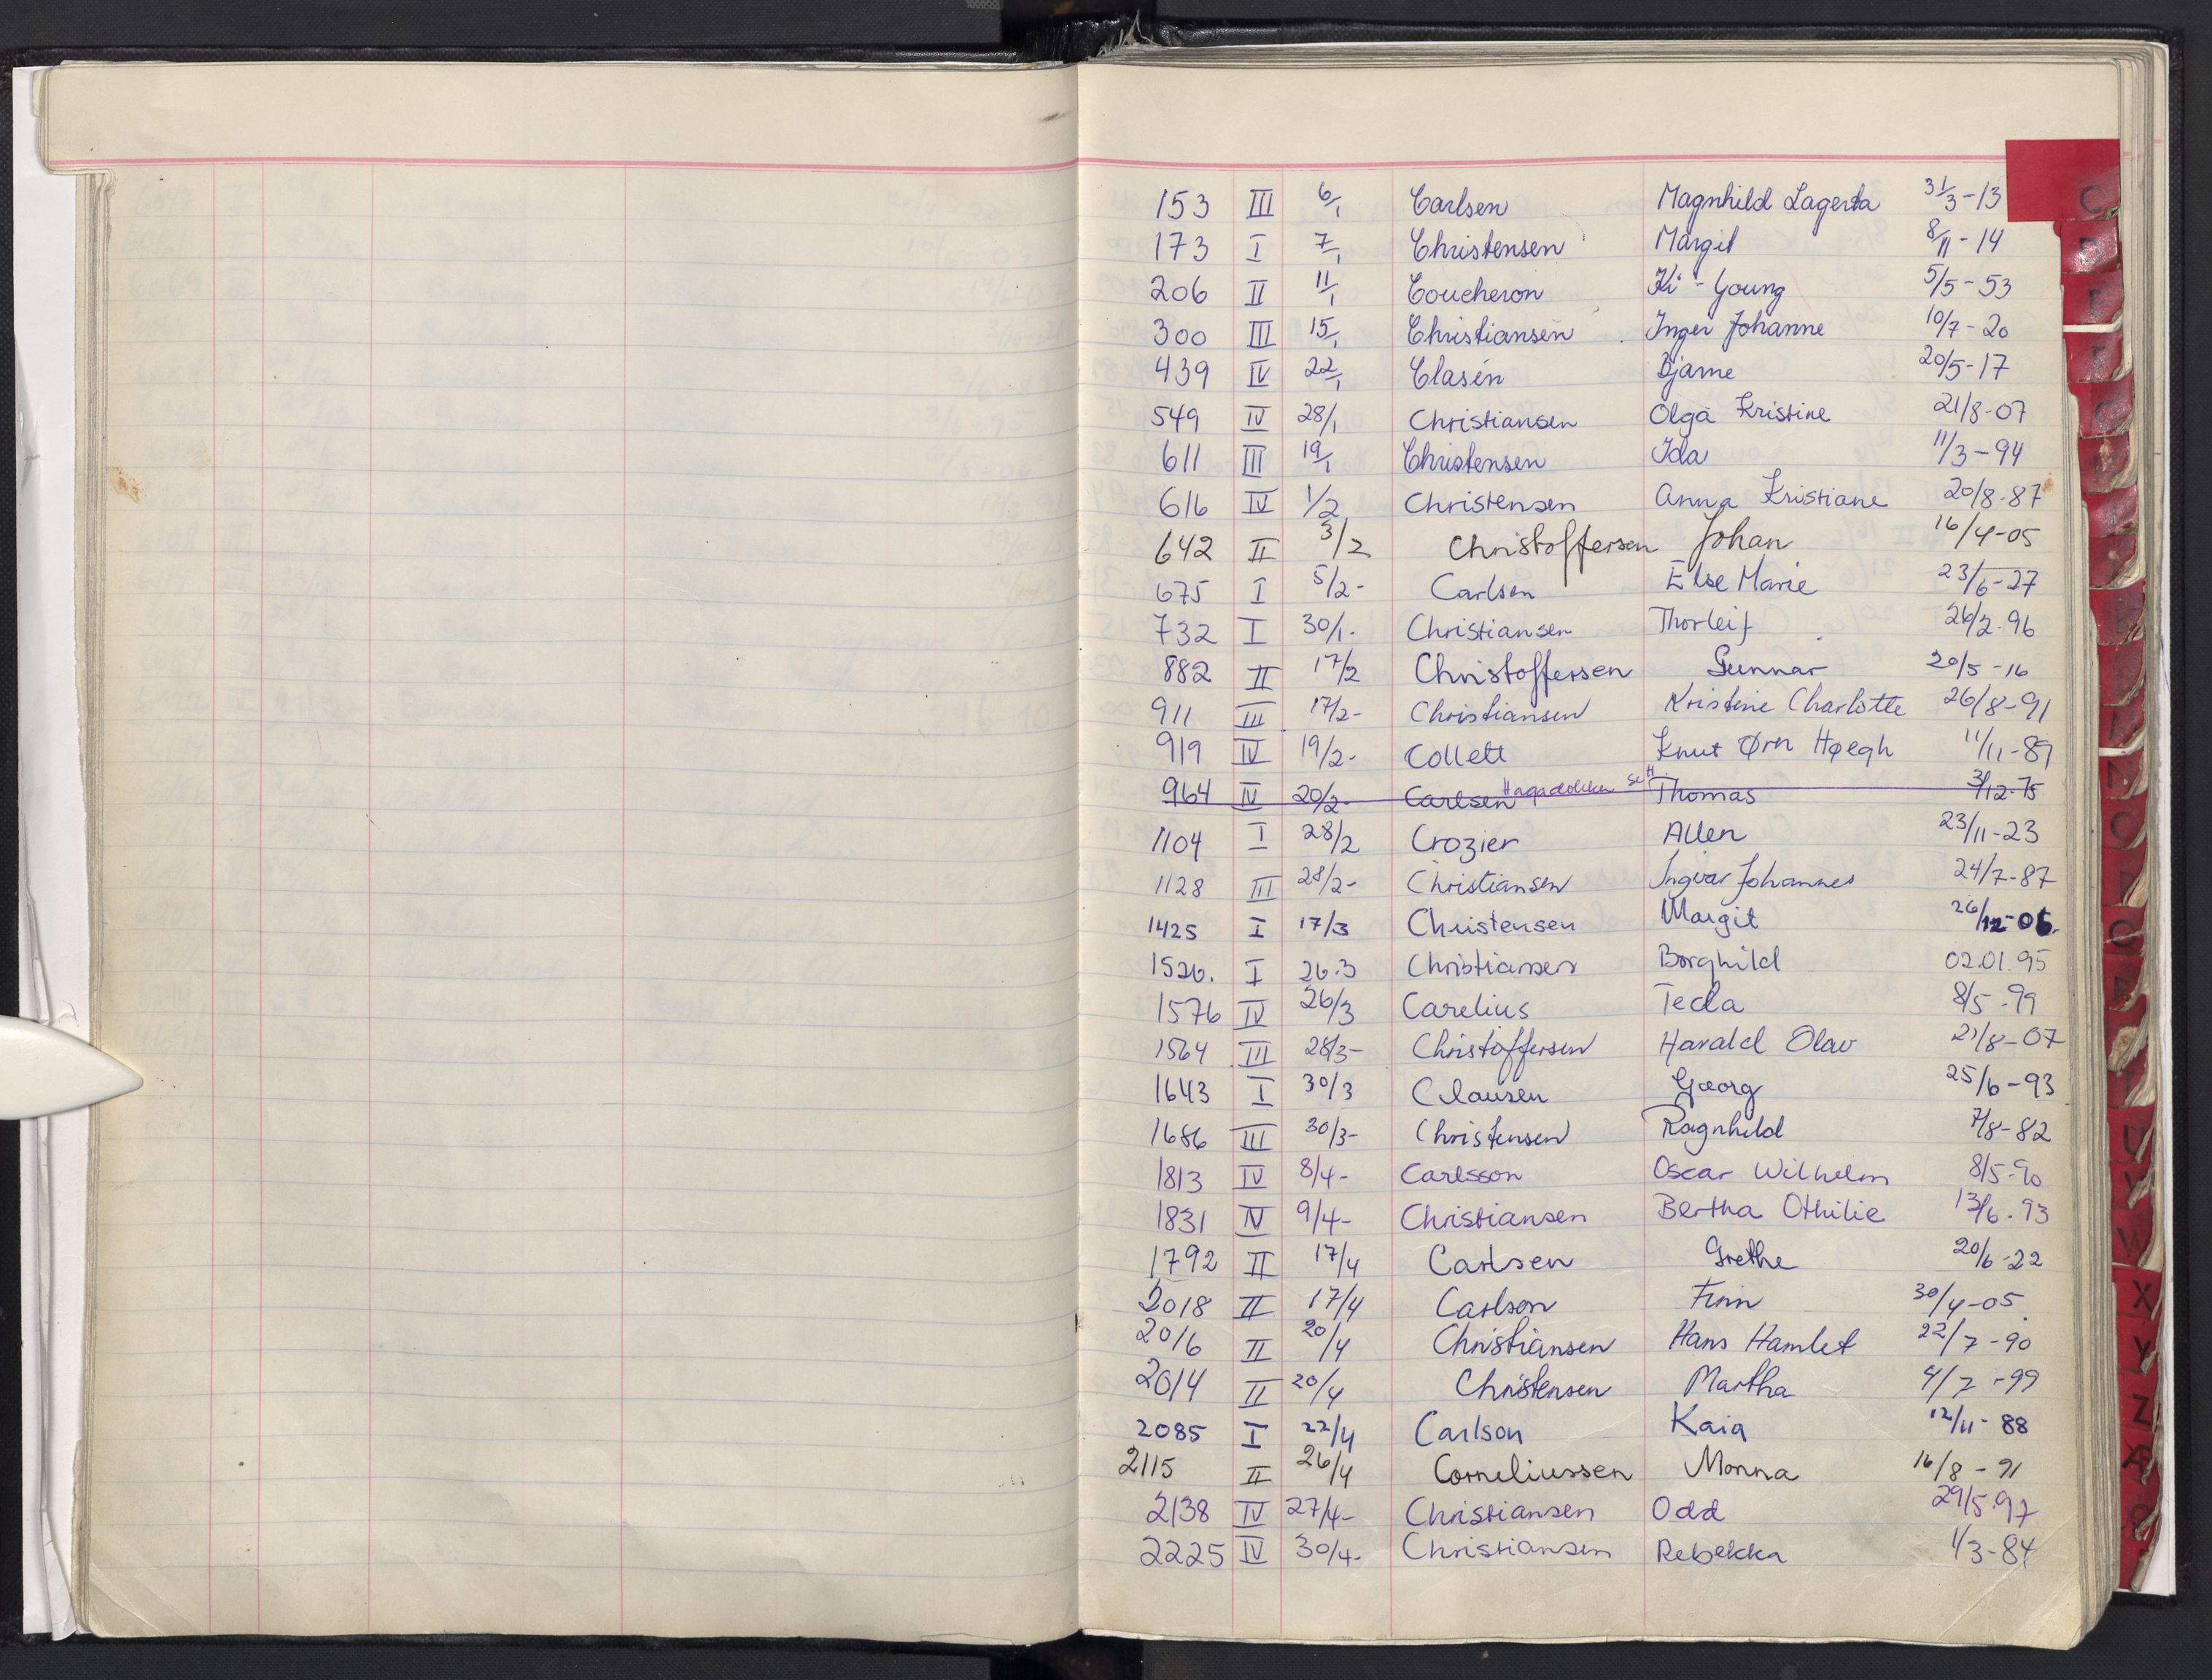 153 III 6/1 Carlsen Magnhild Lagerta 31/3-13
173 I 7/1 Christensen Margit 8/11-14
206 II 11/1 Coucheron Ki-Young 5/5-53
300 III 15/1 Christiansen Inger Johanne 10/7-20
439 IV 22/1 Clasen Bjarne 20/5-17
549 IV 28/1 Christiansen Olga Kristine 21/8-07
611 III 19/1 Christensen Ida 11/3-94
616 IV 1/2 Christensen Anna Kristiane 20/8-87
642 II 3/2 Christoffersen Johan 16/4-05
675 I 5/2- Carlsen Else Marie 23/6-27
732 I 30/1- Christiansen Thorleif 26/2-96
882 II 17/2 Christoffersen Gunnar 20/5-16
911 III 17/2- Christiansen Kristine Charlotte 26/8-91
919 IV 19/2- Collett Knut Ørn Høegh 11/11-89
964 IV 20/2- Carlsen Se H Thomas 3/12-75
1104 I 28/2 Crozier Allen 23/11-23
1128 III 28/2- Christiansen Ingvar Johannes 24/7-87
1425 I 17/3 Christensen Margit 26/12-06.
1526. I 26.3 Christiansen Borghild 02.01.95
1576 IV 26/3 Carelius Tecla 8/5-99
1564 III 28/3- Christoffersen Harald Olav 21/8-07
1643 I 30/3 Clausen Georg 25/6-93
1686 III 30/3- Christensen Ragnhild 7/8-82
1813 IV 8/4- Carlsson Oscar Wilhelm 8/5-90
1831 IV 9/4- Christiansen Bertha Othilie 13/6-93
1792 II 17/4 Carlsen Grethe 20/6-22
2018 II 17/4 Carlson Finn 30/4-05
2016 II 20/4 Christiansen Hans Hamlet 22/7-90
2014 II 20/4 Christensen Martha 4/7-99
2085 I 22/4 Carlson Kaia 12/11-88
2115 II 26/4 Corneliussen Monna 16/8-91
2138 IV 27/4- Christiansen Odd 29/5.97
2225 IV 30/4- Christiansen Rebekka 1/3-84
C
O
P
Q
U
V
W
X
Y
Z